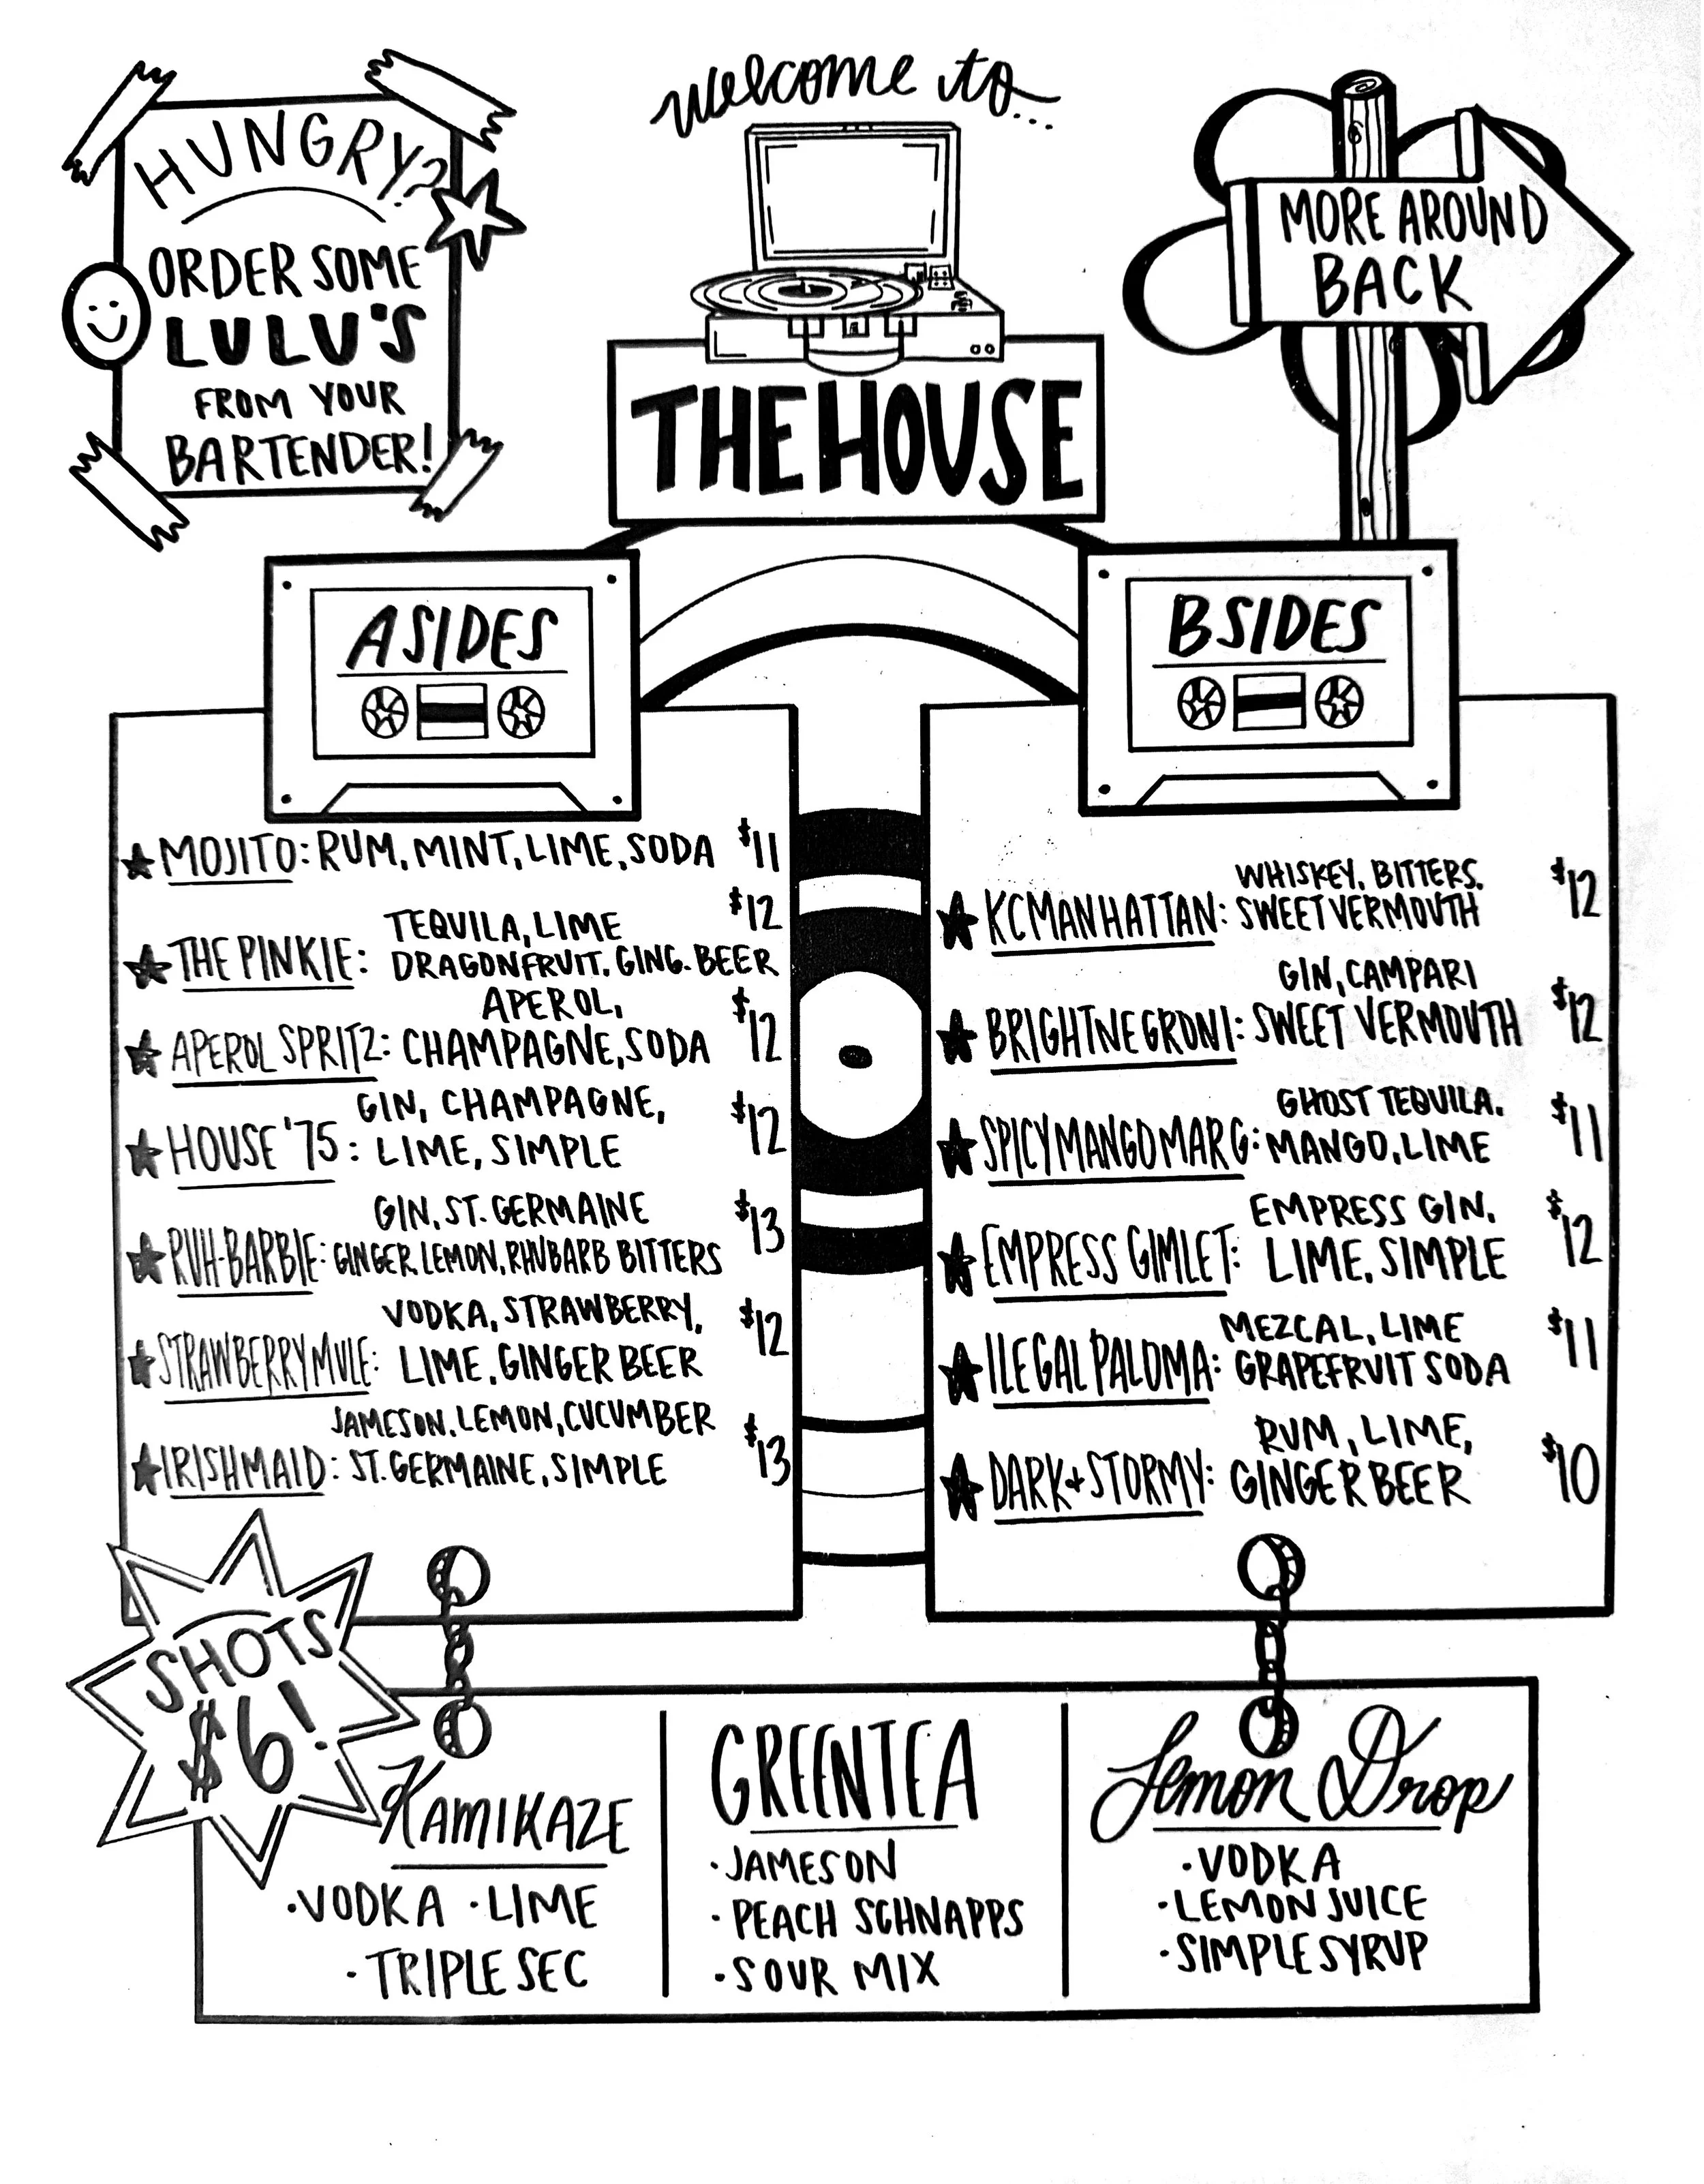 HUNGRY?
ORDER SOME
LULU'S
FROM YOUR
BARTENDER!
welcome to...
THE HOUSE
MORE AROUND
BACK
A SIDES
MOJITO: RUM, MINT, LIME, SODA $11
TEQUILA, LIME $12
THE PINKIE: DRAGONFRUIT, GING. BEER
APEROL, $12
APEROL SPRITZ: CHAMPAGNE, SODA
GIN, CHAMPAGNE, $12
HOUSE '75: LIME, SIMPLE
GIN, ST. GERMAINE $13
RUH-BARBIE: GINGER, LEMON, RHUBARB BITTERS
VODKA, STRAWBERRY, $12
STRAWBERRY MULE: LIME, GINGER BEER
JAMESON, LEMON, CUCUMBER $13
IRISH MAID: ST. GERMAINE, SIMPLE
B SIDES
WHISKEY, BITTERS, $12
KC MANHATTAN: SWEET VERMOUTH
GIN, CAMPARI $12
BRIGHT NEGRONI: SWEET VERMOUTH
GHOST TEQUILA, $11
SPICY MANGO MARG: MANGO, LIME
EMPRESS GIN, $12
EMPRESS GIMLET: LIME, SIMPLE
MEZCAL, LIME $11
ILEGAL PALOMA: GRAPEFRUIT SODA
RUM, LIME, $10
DARK + STORMY: GINGER BEER
SHOTS
$6!
KAMIKAZE
·VODKA ·LIME
·TRIPLE SEC
GREEN TEA
·JAMESON
·PEACH SCHNAPPS
·SOUR MIX
Lemon Drop
·VODKA
·LEMON JUICE
·SIMPLE SYRUP